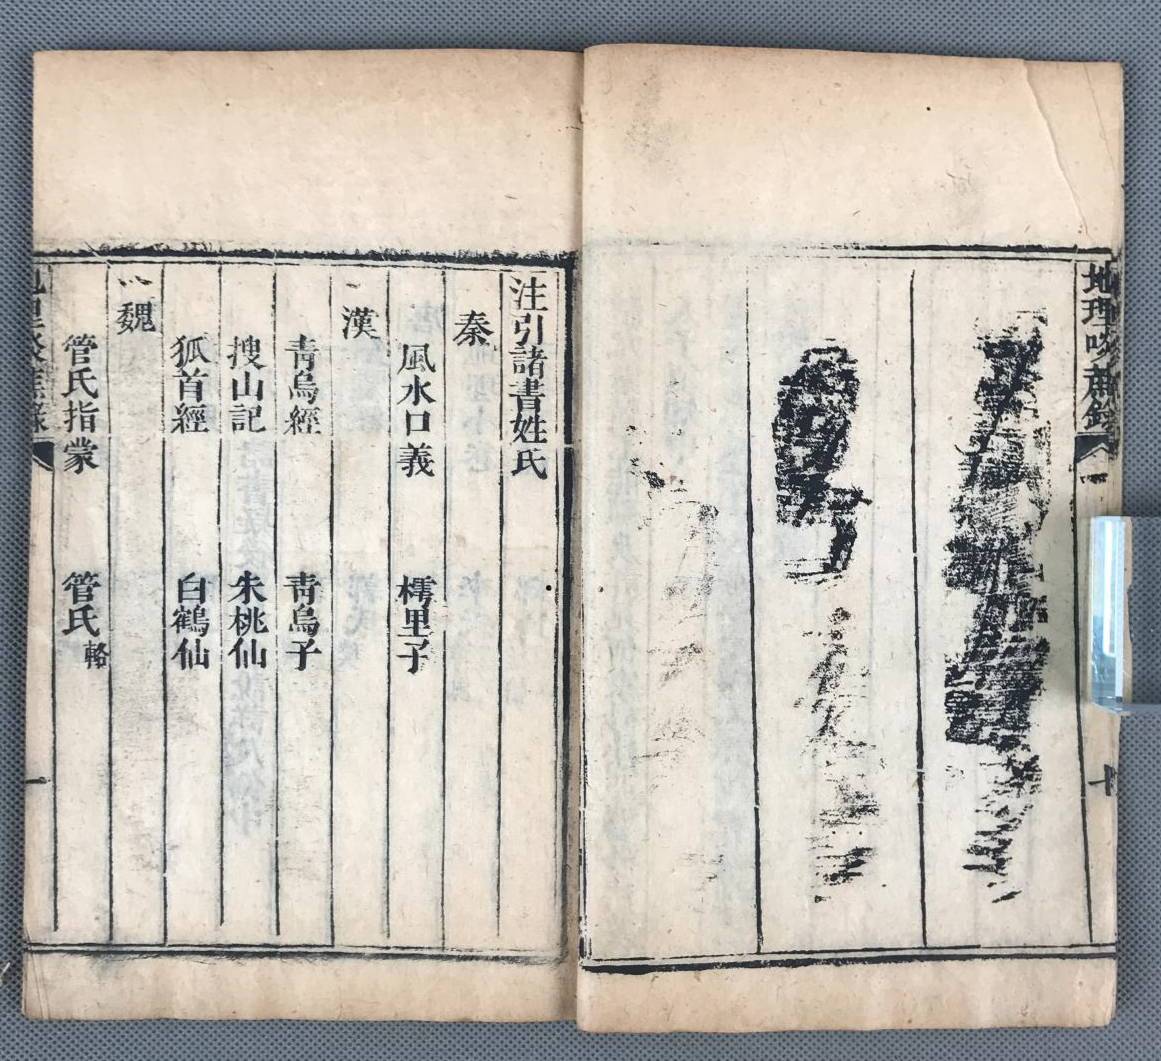 地理啖蔗錄
十
注引諸書姓氏
秦
風水口義 樗里子
漢
青烏經 青烏子
搜山記 朱桃仙
狐首經 白鶴仙
魏
管氏指蒙 管氏 輅
一